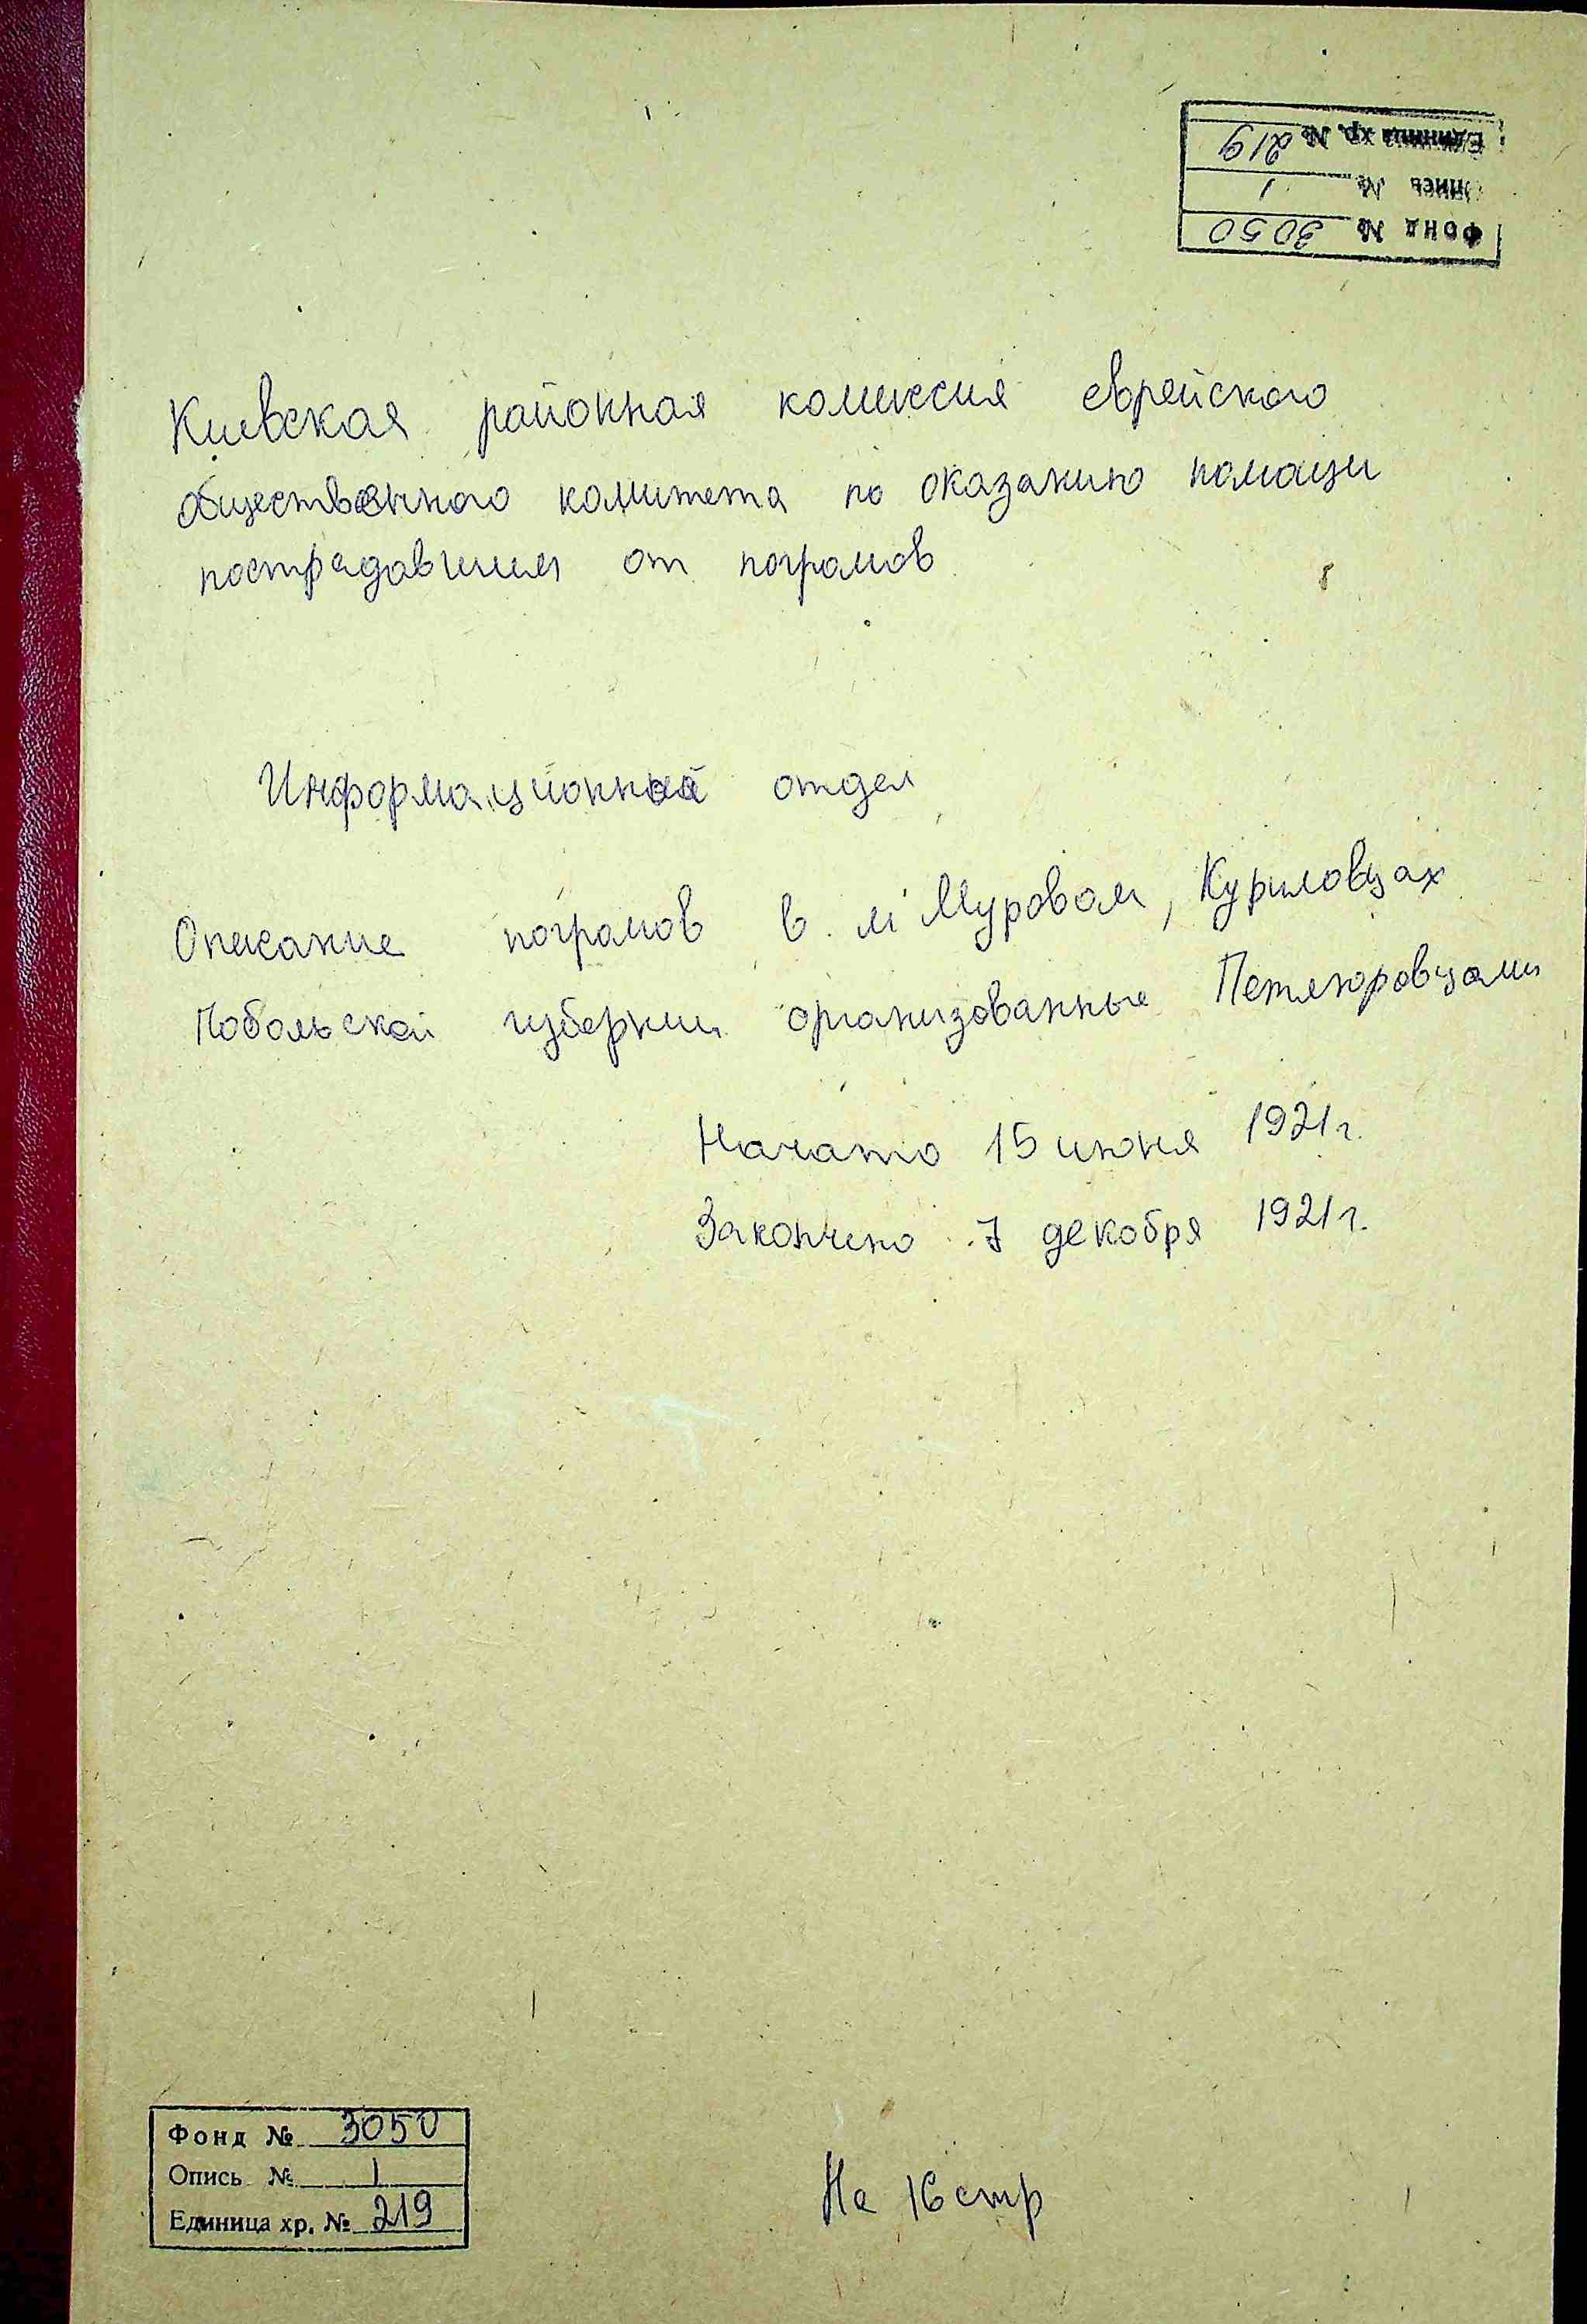 Единица хр. № 219
Опись № 1
Фонд № 3050
Киевская районная комиссия еврейского
общественного комитета по оказанию помощи
пострадавшим от погромов
Информационный отдел
Описание погромов в м. Муровом, Куриловцах
Подольской губернии организованные Петлюровцами
Начато 15 июня 1921 г.
Закончено 7 декабря 1921 г.
Фонд № 3050
Опись № 1
Единица хр. № 219
На 16 стр